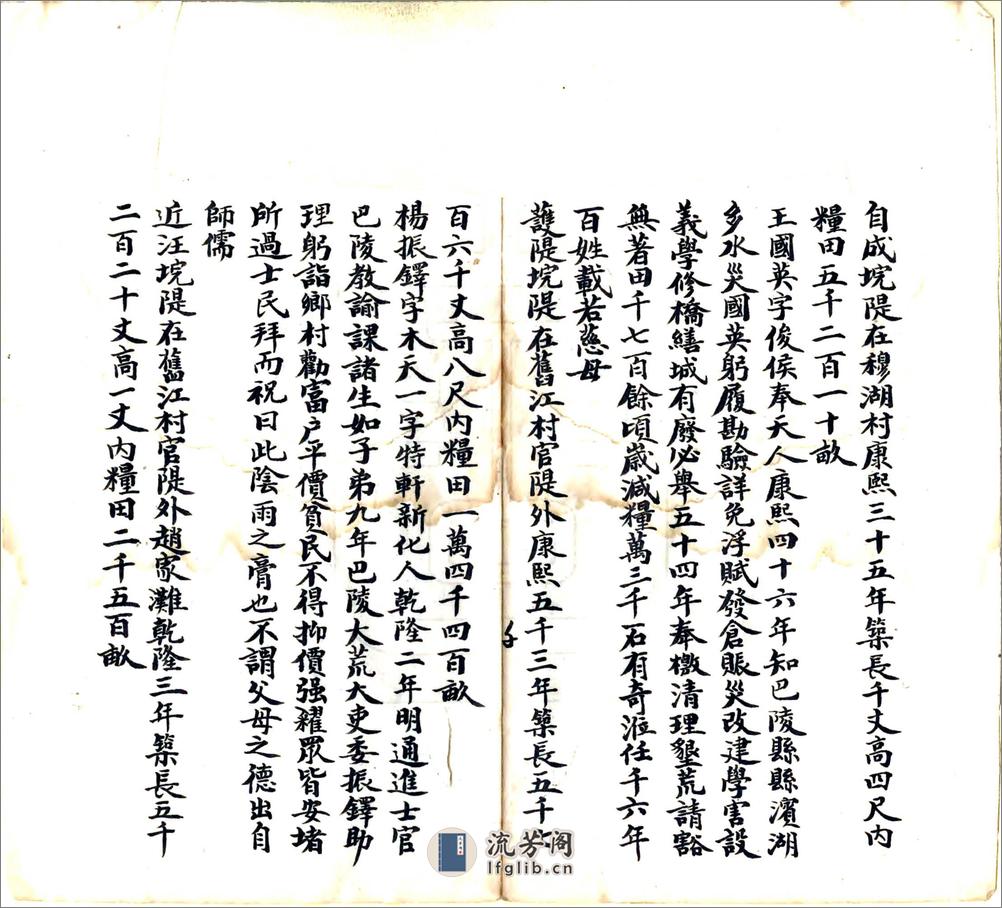 自成垸隄在穆湖村康熙三十五年築長千丈高四尺内
糧田五千二百一十畝
王國英字俊侯奉天人康熙四十六年知巴陵縣縣濱湖
多水災國英躬履勘驗詳免浮賦發倉賑災改建學宫設
義學修橋繕城有廢必舉五十四年奉檄清理墾荒請豁
無著田千七百餘頃歲減糧萬三千石有奇涖任千六年
百姓載若慈母
護隄垸隄在舊江村官隄外康熙五千三年築長五千
百六千丈高八尺内糧田一萬四千四百畝
楊振鐸字木天一字特軒新化人乾隆二年明通進士官
巴陵教諭課諸生如子弟九年巴陵大荒大吏委振鐸助
理躬詣鄉村勸富户平價貧民不得抑價强糴眾皆安堵
所過士民拜而祝曰此陰雨之膏也不謂父母之德出自
師儒
近汪垸隄在舊江村官隄外趙家灘乾隆三年築長五千
二百二十丈高一丈内糧田二千五百畝
流芳阁
lfglib.cn